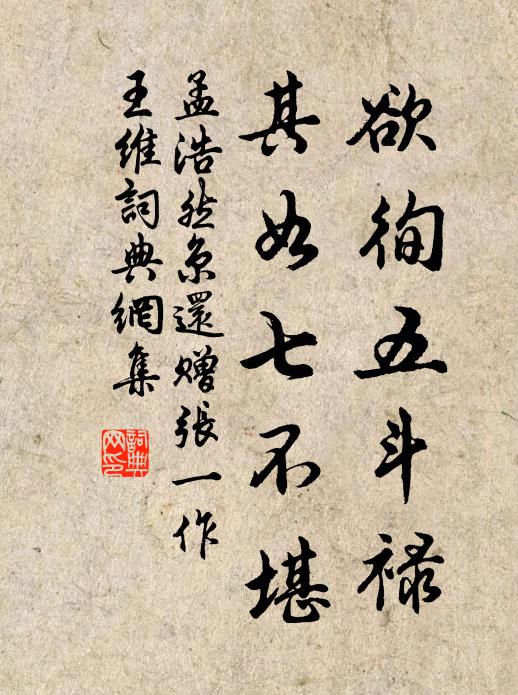 欲徇五斗禄
其如七不堪
孟浩然京還赠張一作
王維詞典網集
詞典网印